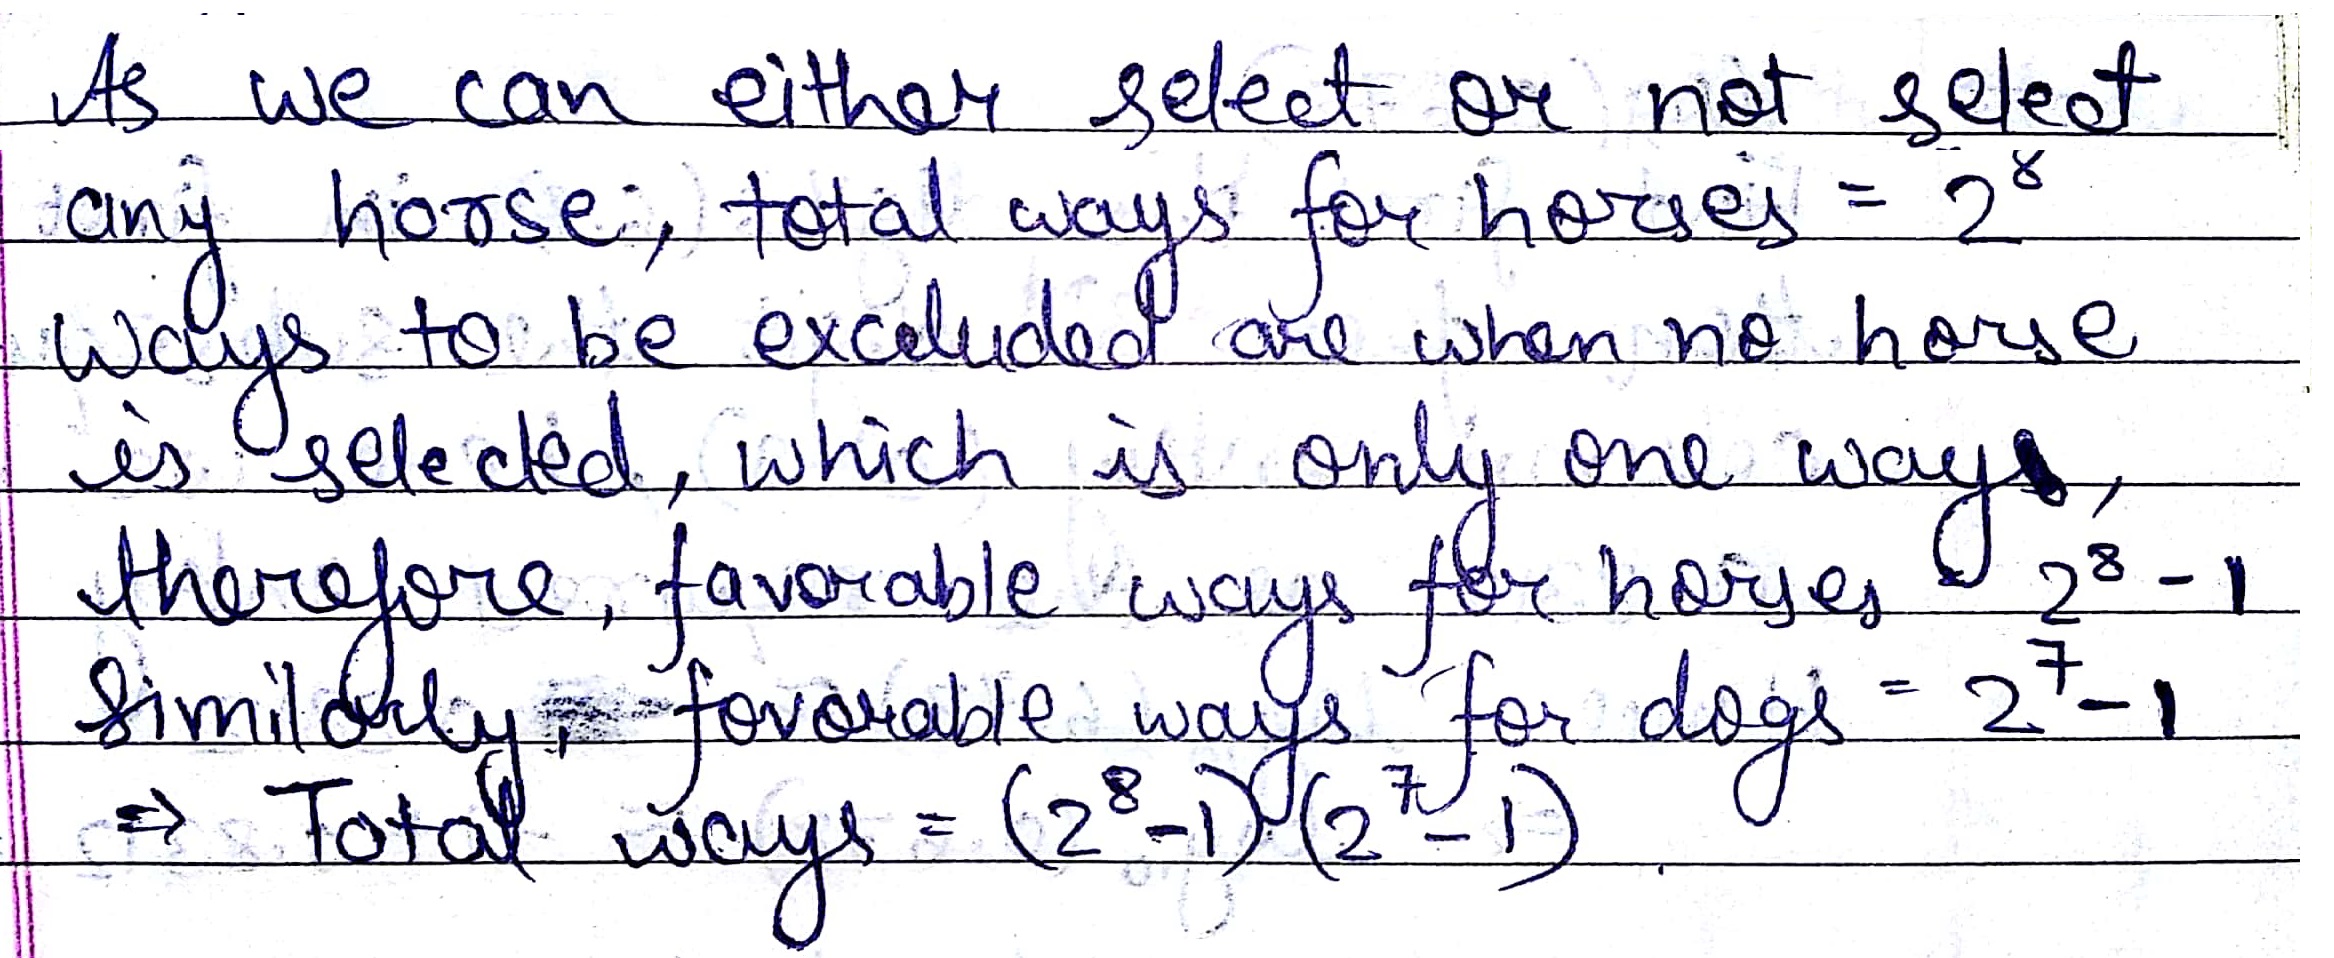 As we can either select or not select
any horse, total ways for horses = 2⁸
ways to be exceluded are when no horse
is selected, which is only one way,
therefore, favorable ways for horses = 2⁸-1
Similarly, favorable ways for dogs = 2⁷-1
⇒ Total ways = (2⁸-1)(2⁷-1)